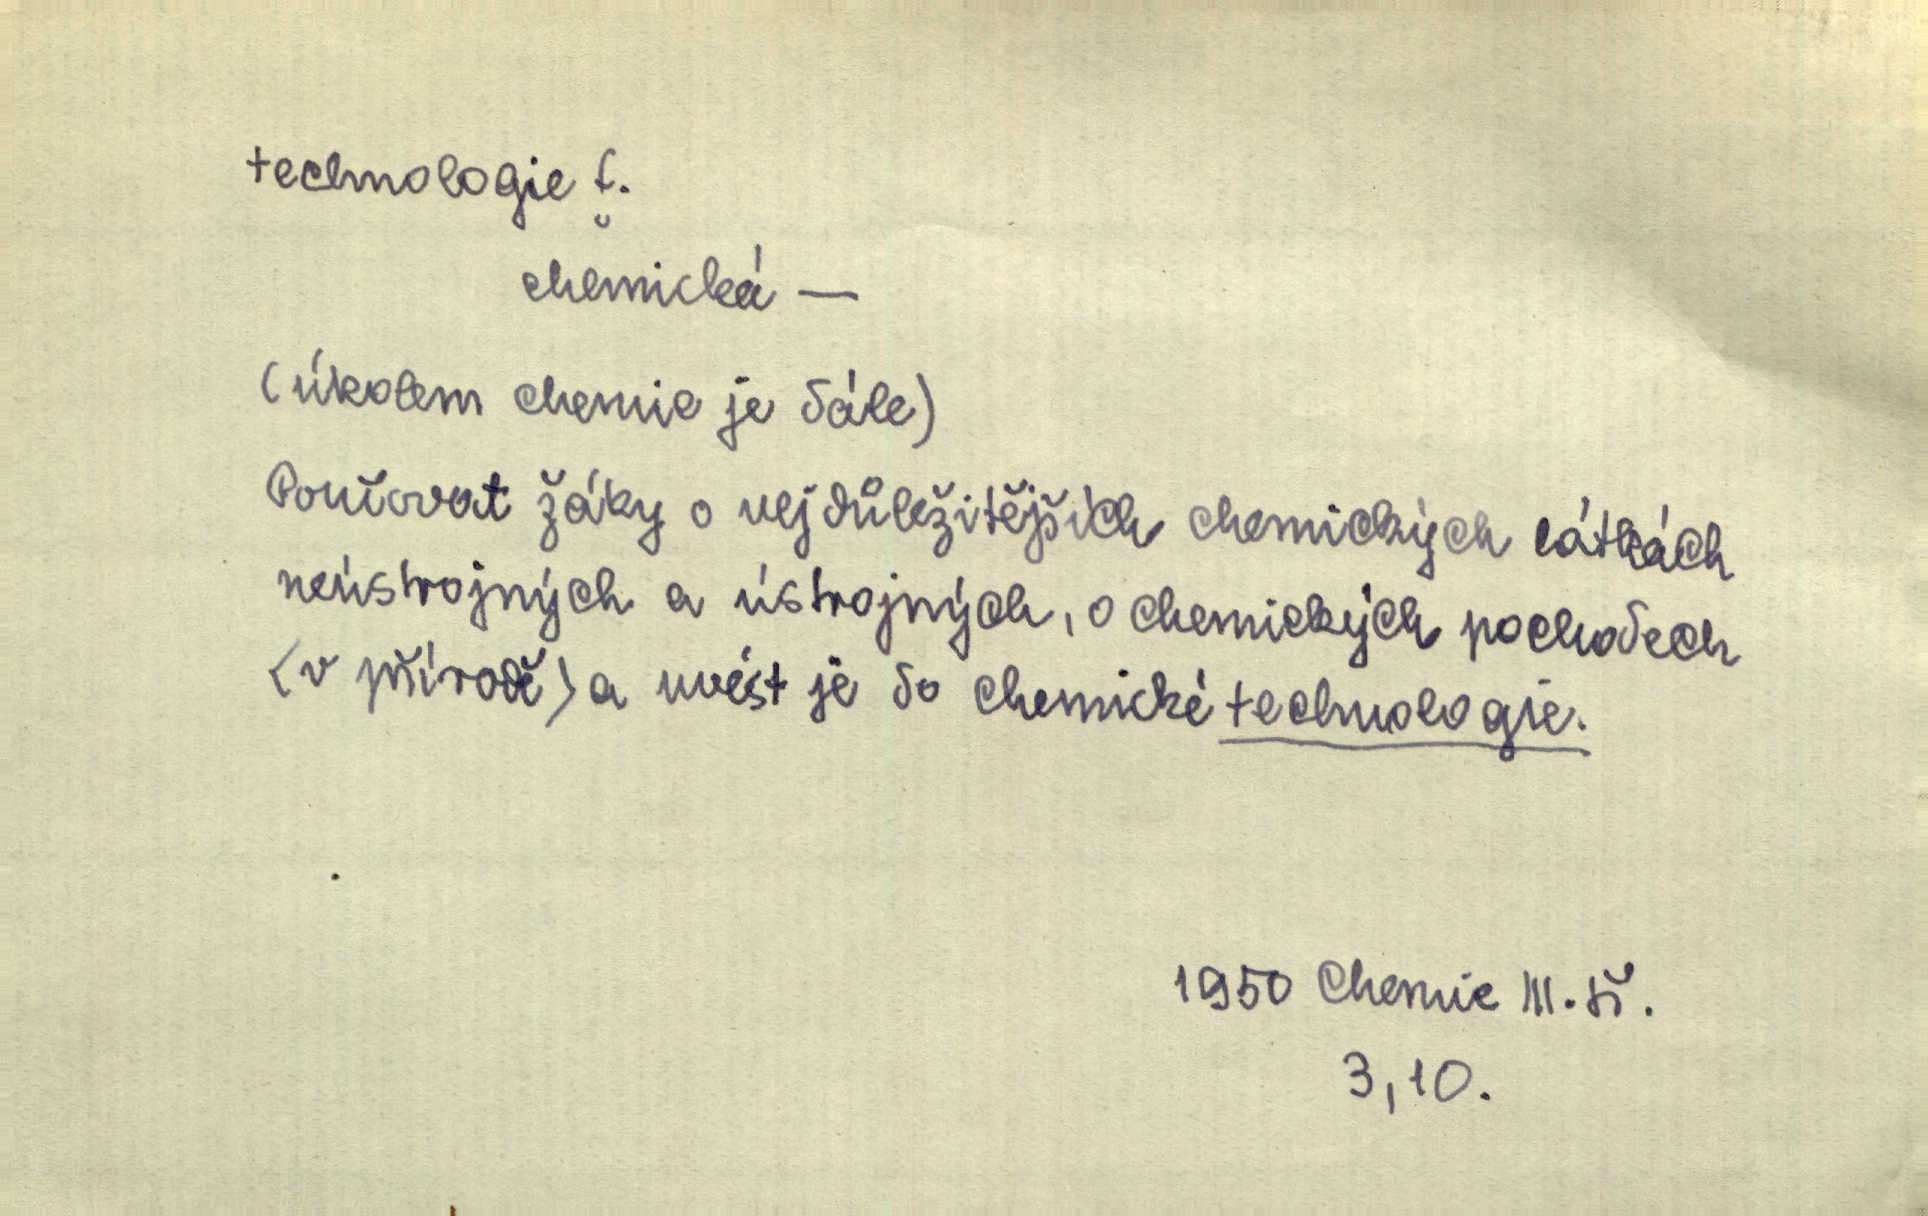 technologie f.
chemická —
(úkolem chemie je dále)
Poučovat žáky o nejdůležitějších chemických látkách
neústrojných a ústrojných, o chemických pochodech
<v přírodě> a uvést je do chemické technologie.
1950 Chemie III. tř.
3, 10.